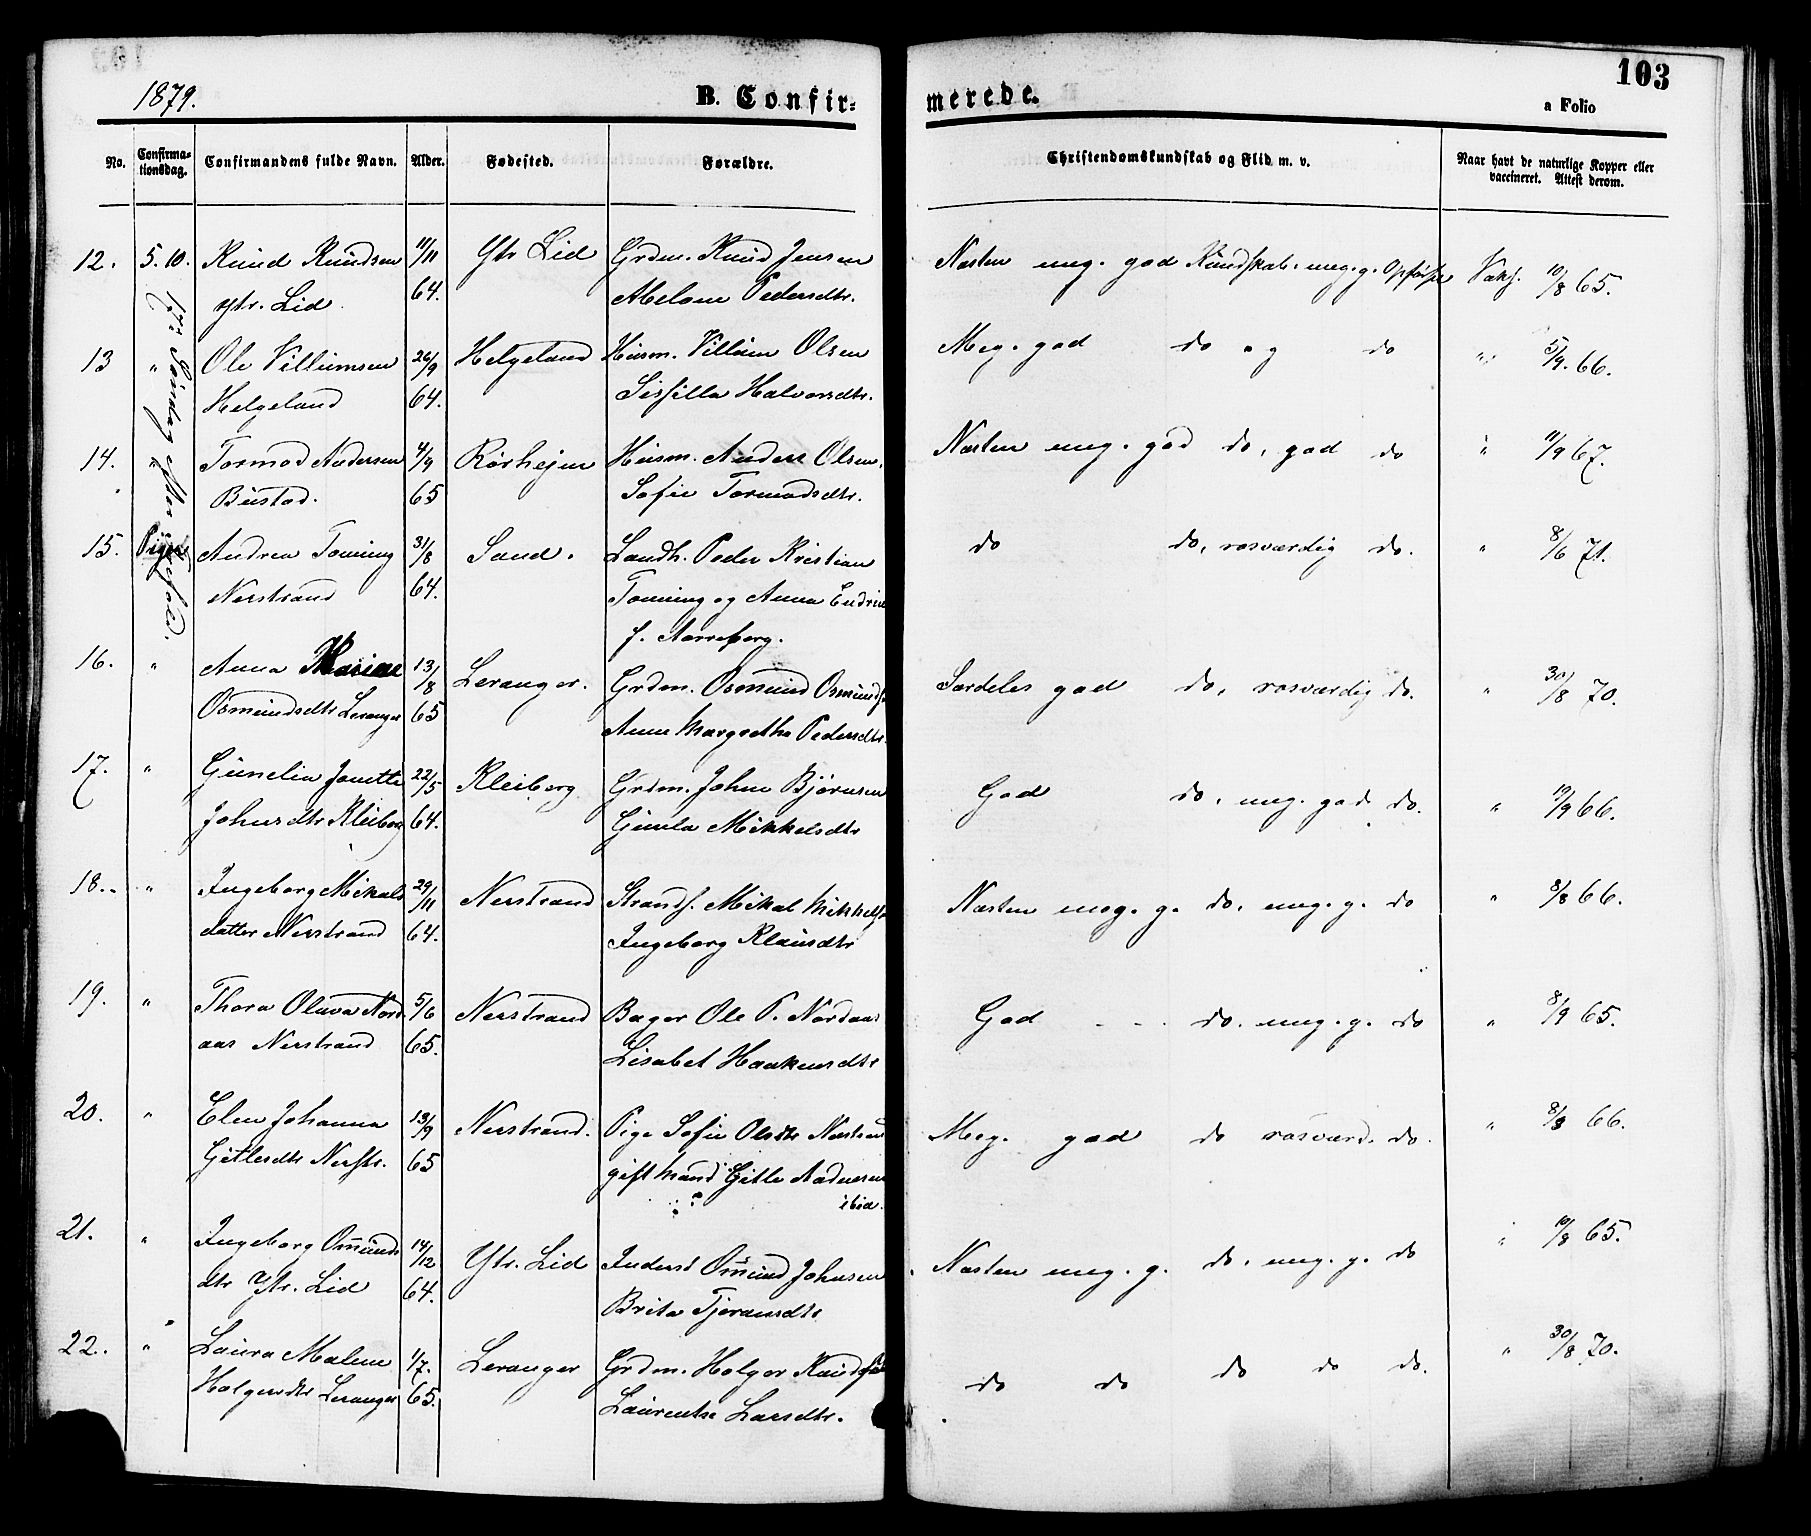 103
1879.
B. Confir-
merede.
a Folio
No.
Confirma-
tionsdag.
Confirmandens fulde Navn.
Alder.
Fødested.
Forældre.
Christendomskundskab og Flid m. v.
Naar havt de naturlige Kopper eller
vaccineret. Attest derom.
17. Søndag
12. 5.10. Knud Knudsen 11/11 Ytr Lid Grdm. Knud Jensen Næsten meg. god Kundskab. meg. g. Opførsel Vakz. 10/8 65.
ytr. Lid. 64. Pedersdtr.
13 " Ole Villumsen 26/9 Helgeland Husm. Villum Olsen Meg. god do og do " 5/9. 66.
Helgeland 64. Sissilla Halvorsdtr.
14. " Tormod Andersen 4/9 Rørhejen Husm. Anders Olsen. Næsten meg. god do, god do " 11/9 67.
Bustad. 65 Sofie Tormodsdtr.
15. Piger Andrea Tonning 31/8 Sand. Landh. Peder Kristian do do, rosværdig do. " 8/6 71.
Nerstrand 64. Tonning og Anna
f.
16. " Anna Marine 13/8 Leranger. Grdm. Osmund Osmunds. Særdeles god do, rosværdig do. " 30/8 70.
Osmundsdtr Leranger 65 Anne Margrethe Pedersdtr.
17. " Gunelia Jonette 22/5 Kleiberg Grdm. John Bjørnsen God do, meg. god do. " 19/9 66.
Johnsdtr Kleiberg 64. Gunla Mikkelsdtr
18. " Ingeborg Mikals 29/11 Nerstrand Strands. Mikal Mikkels. Næsten meg. g. do, meg. g. do " 8/8 66.
datter Nerstrand 64. Ingeborg Klausdtr
19. " Thora Olava Nord 5/6 Nerstrand Bager Ole P. Nordaas God - - - do. meg. g. do " 8/9 65.
aas Nerstrand 65. Lisabet Haakensdtr
20. " Elen Johanna 13/9 Nerstrand. Pige Sofie Olsdtr Nerstran Meg. god do rosværd. do. " 8/8 66.
Gitlesdtr Nerstr. 65 gift Mand Gitle Aadnesen
? ibid.
21. " Ingeborg Omunds 14/12 Ytr. Lid Inderst Omund Johnsen Næsten meg. g. do, meg. g. do " 10/8 65.
dtr Ytr. Lid 64. Brita Tjeransdtr
22. " Laura Malene 1/7. Leranger Grdm. Holger Knuds. do do do do do. " 30/8 70.
Holgersdtr Leranger 65. Laurentse Larsdtr.